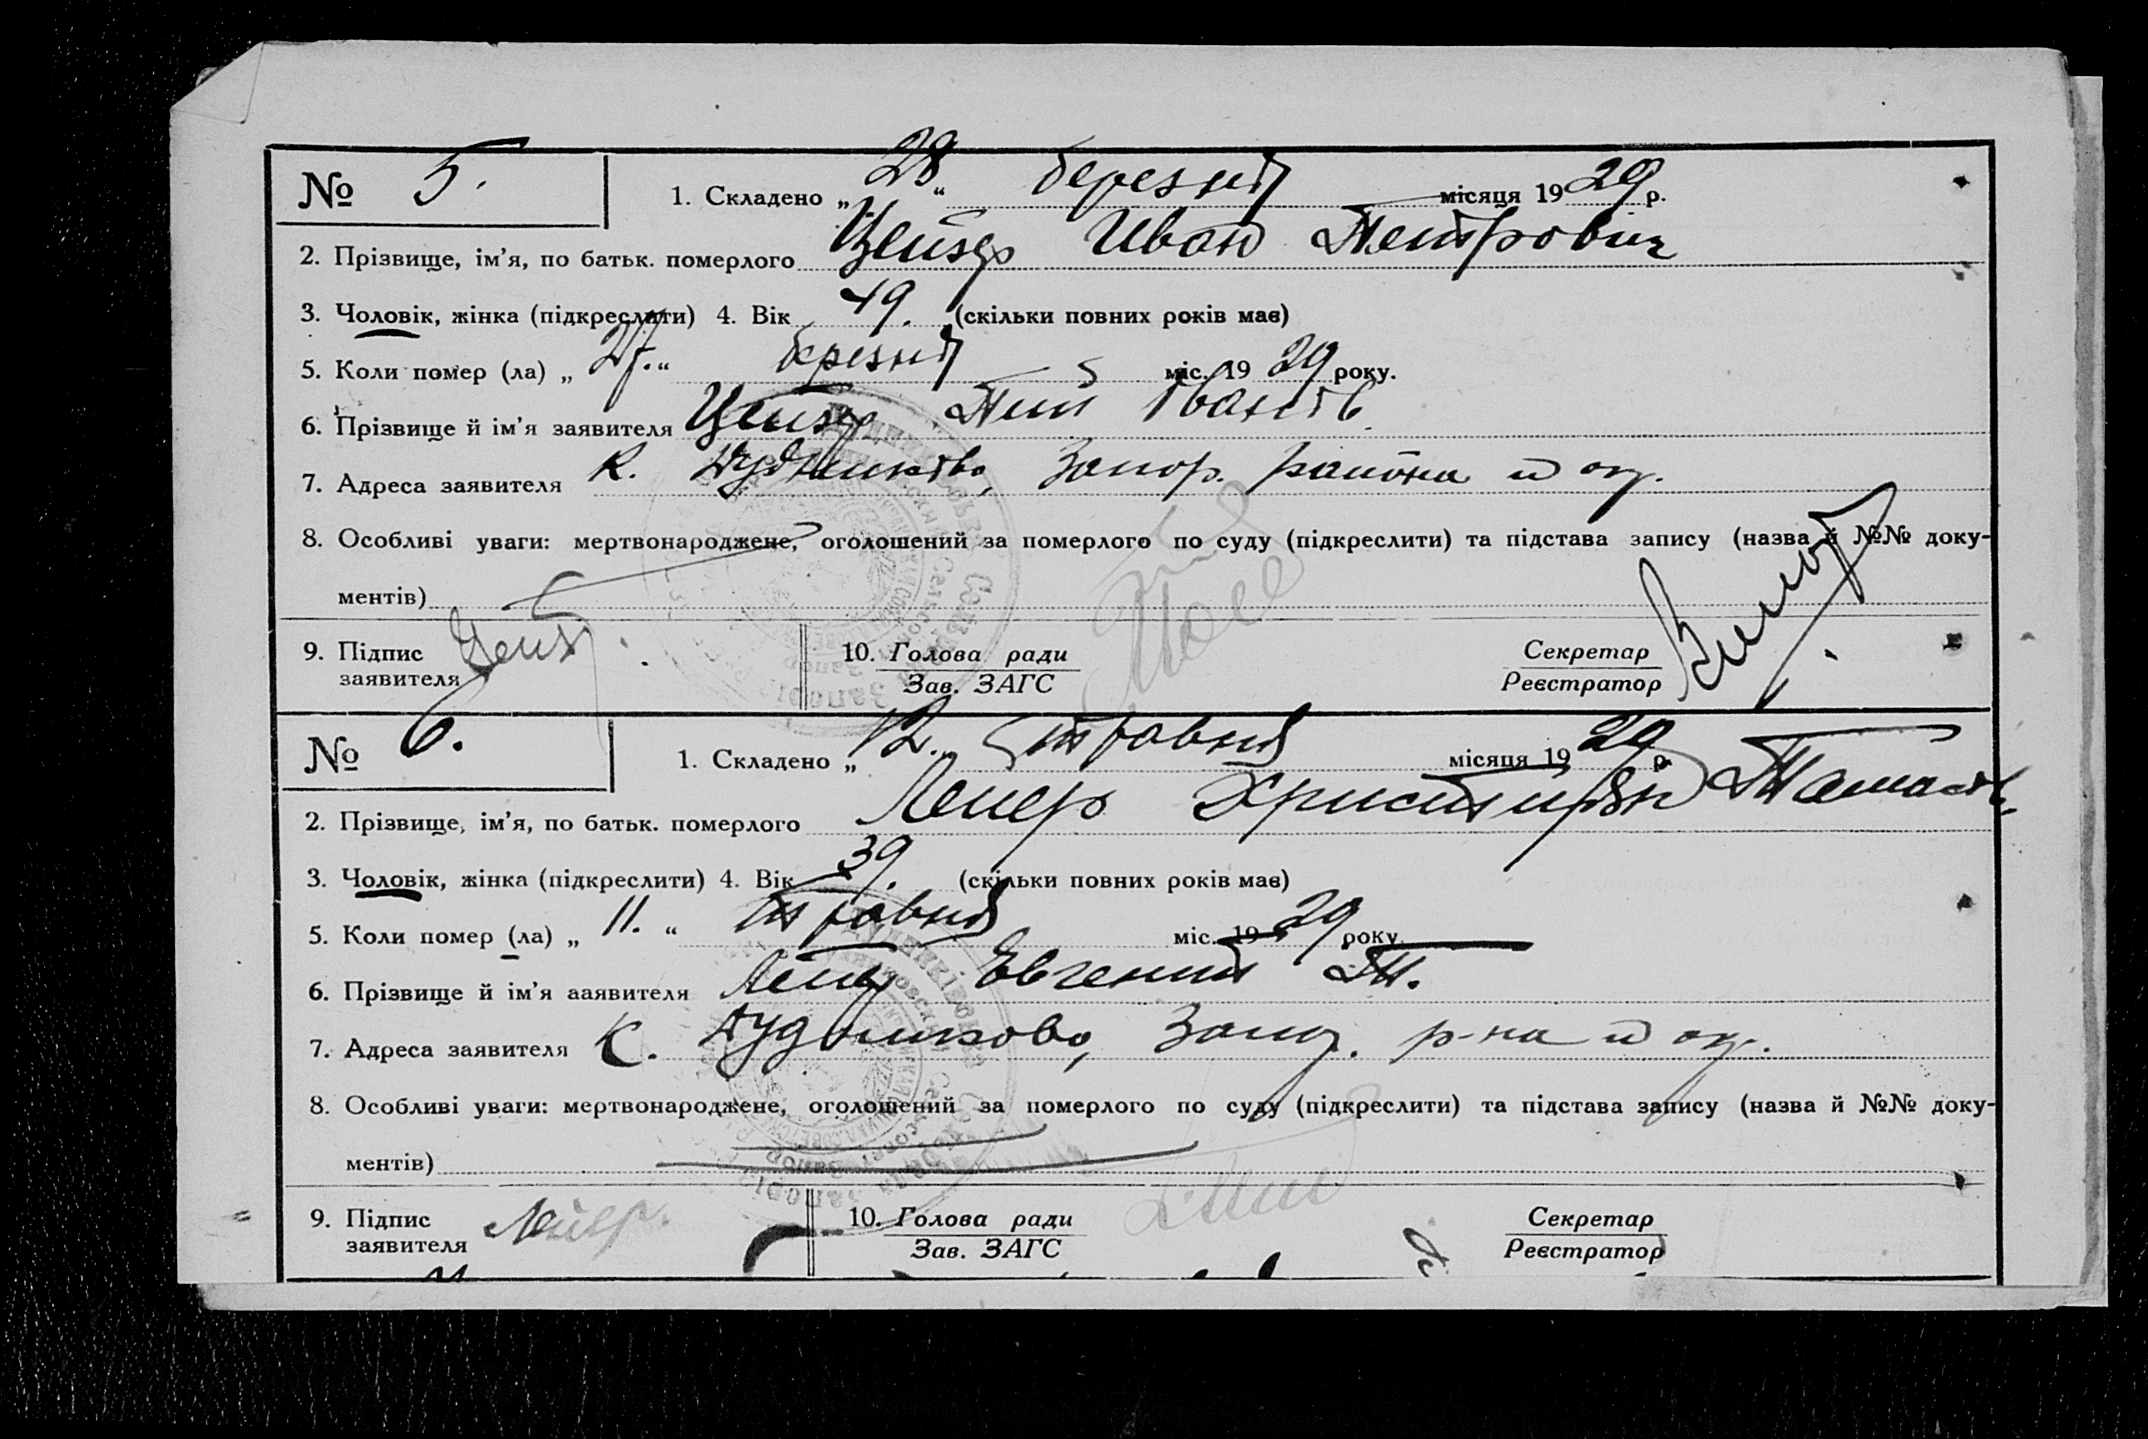 № 5. 1. Складено „28“ березня місяця 1929 р.
2. Прізвище, ім’я, по батьк. померлого Цейзер Иван Петрович
3. Чоловік, жінка (підкреслити) 4. Вік 49. (скільки повних років має)
5. Коли помер (ла) „27.“ березня міс. 1929 року.
6. Прізвище й ім’я заявителя Цейзер
7. Адреса заявителя к. Запор. района и окр.
8. Особливі уваги: мертвонароджене, оголошений за померлого по суду (підкреслити) та підстава запису (назва й №№ доку-
ментів)
9. Підпис заявителя 10. Голова ради Секретар
Зав. ЗАГС Реєстратор
№ 6. 1. Складено „12. травня місяця 1929 р.
2. Прізвище, ім’я, по батьк. померлого Лейер Християн
3. Чоловік, жінка (підкреслити) 4. Вік 39. (скільки повних років має)
5. Коли помер (ла) „11.“ травня міс. 1929 року
6. Прізвище й ім’я ааявителя Лейер Евгения
7. Адреса заявителя к. Дудниково, Запор. р-на и окр.
8. Особливі уваги: мертвонароджене, оголошений за померлого по суду (підкреслити) та підстава запису (назва й №№ доку-
ментів)
9. Підпис заявителя Лейер. 10. Голова ради Секретар
Зав. ЗАГС Реєстратор